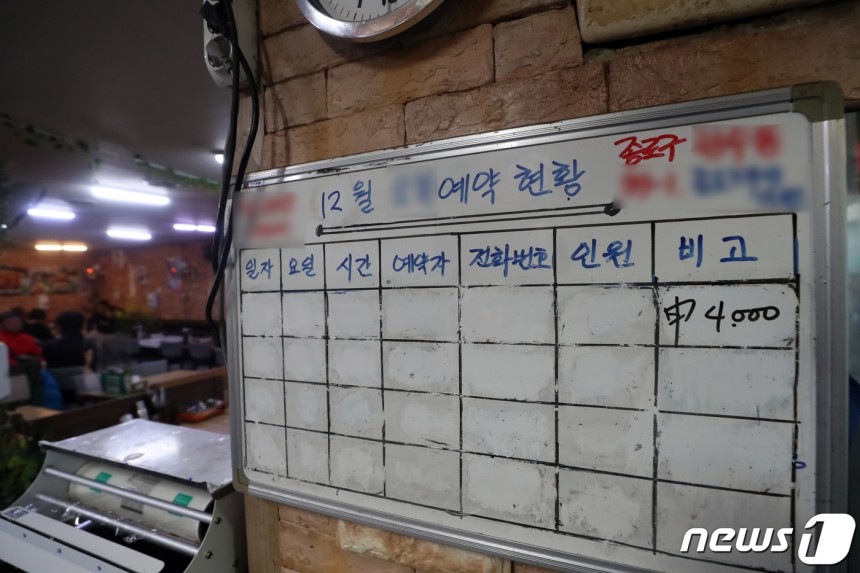 종로구
12월 예약 현황
일자 요일 시간 예약자 전화번호 인원 비고
申 4.000
news1